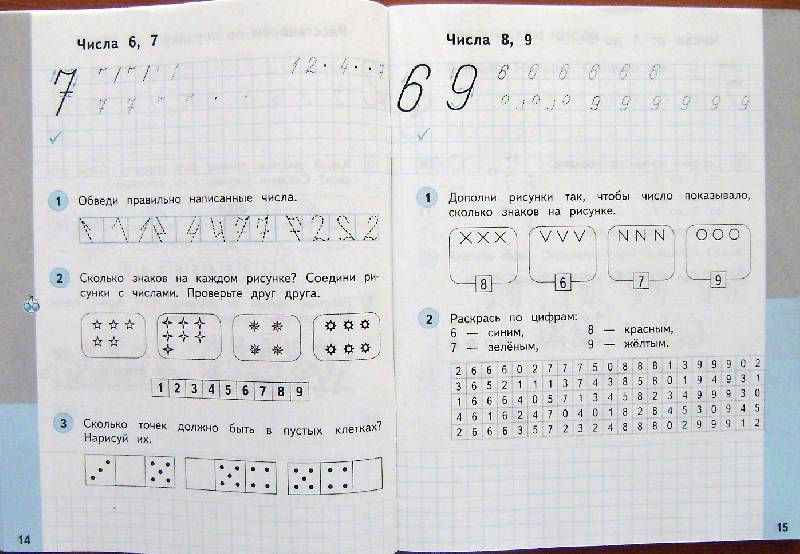 Числа 6, 7
7
1 2 · 4 · · 7
7 7 7
1 Обведи правильно написанные числа.
2 Сколько знаков на каждом рисунке? Соедини ри-
сунки с числами. Проверьте друг друга.
1 2 3 4 5 6 7 8 9
3 Сколько точек должно быть в пустых клетках?
Нарисуй их.
14
Числа 8, 9
6 9
6 6 6 6 6 6
9 9 9 9 9 9
1 Дополни рисунки так, чтобы число показывало,
сколько знаков на рисунке.
X X X V V V N N N O O O
8 6 7 9
2 Раскрась по цифрам:
6 — синим, 8 — красным,
7 — зелёным, 9 — жёлтым.
2 6 6 6 0 2 7 7 7 5 0 8 8 8 1 3 9 9 9 0 2
3 6 5 2 1 1 1 3 7 4 3 8 5 8 0 1 9 4 9 3 1
1 6 6 6 4 0 5 7 1 3 4 5 8 2 3 4 9 9 9 3 0
4 6 1 6 2 4 7 0 4 0 1 8 2 8 4 5 3 0 9 4 5
2 6 6 6 3 5 7 2 3 2 4 8 8 8 0 2 9 9 9 1 2
15